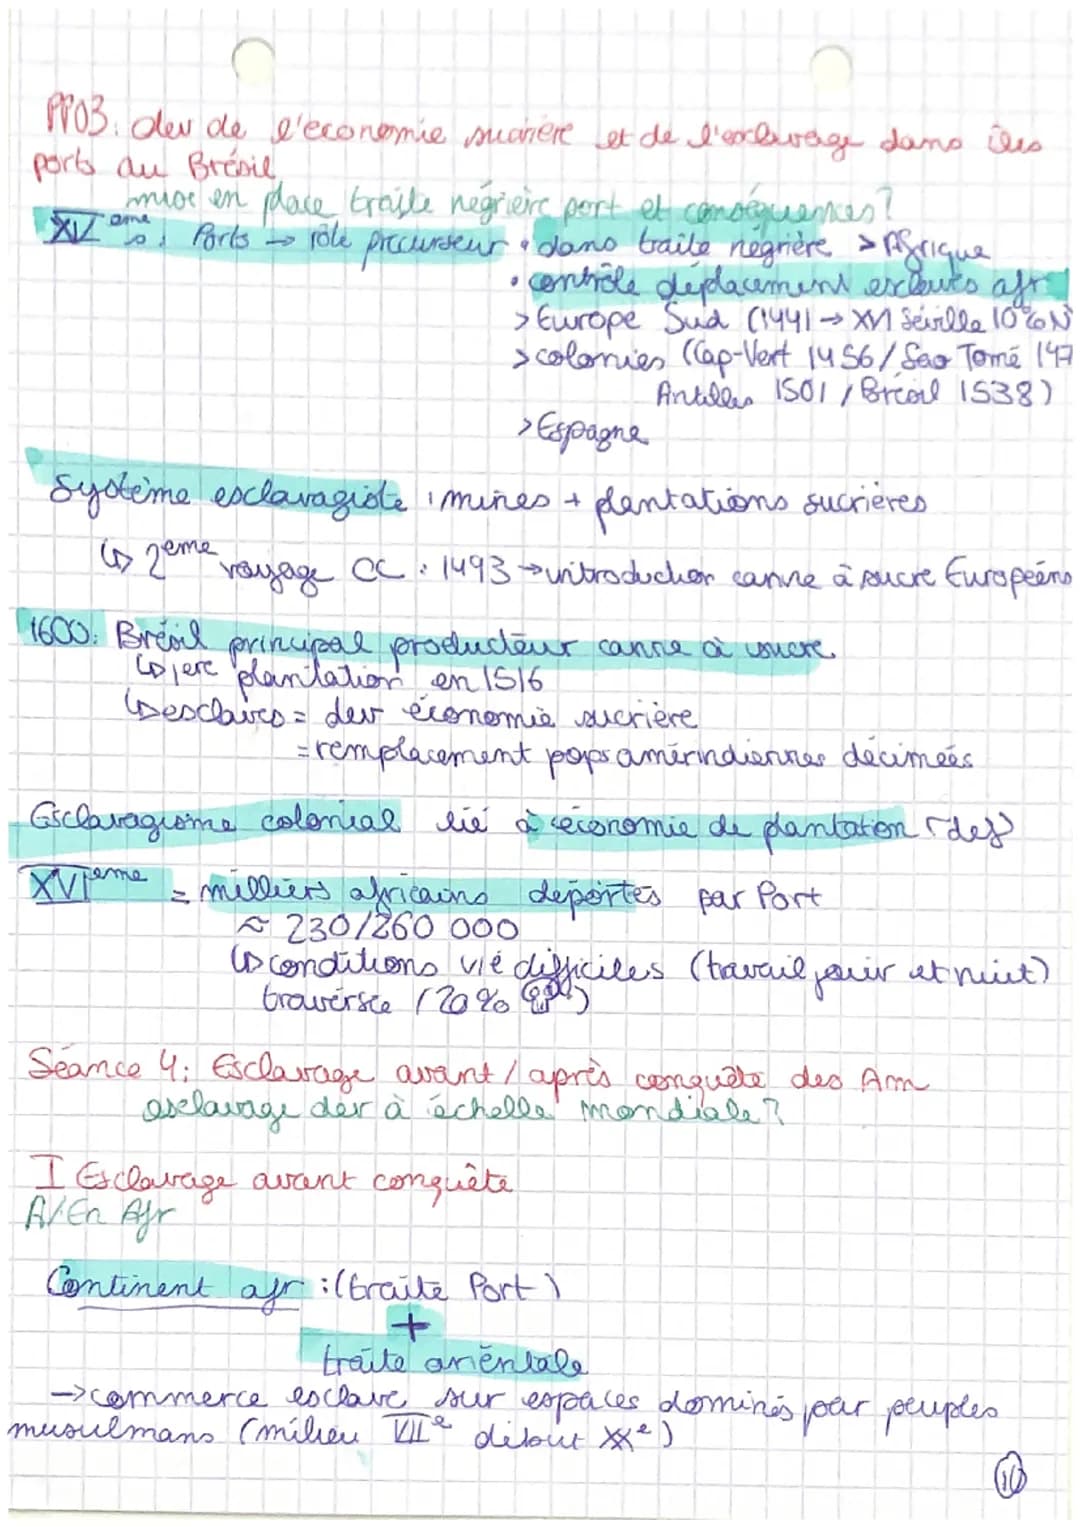 PPO3: dev de l'economie sucrière et de l'esclavage dans îles
ports du Brésil
mise en place traite négrière port et conséquences?
XVème s: Ports → rôle précurseur • dans traite négrière > Afrique
• contrôle déplacement esclaves afr
> Europe Sud (1441 → XVI Séville 10% N
> colonies (Cap-Vert 1456/ Sao Tomé 147
Antilles 1501 / Brésil 1538)
> Espagne
Système esclavagiste : mines + plantations sucrières
↳ 2eme voyage CC : 1493 → introduction canne à sucre Européens
1600: Brésil principal producteur canne à sucre
↳ 1ere plantation en 1516
↳ esclaves = dev économie sucrière
= remplacement pops amérindiennes décimées
Esclavagisme colonial lié à économie de plantation (def)
XVIeme = milliers africains déportés par Port
≈ 230/260 000
↳ conditions vie difficiles (travail jour et nuit)
traversée (20%)
Séance 4: Esclavage avant/après conquête des Am
esclavage dev à échelle mondiale?
I Esclavage avant conquête
A/ En Afr
Continent afr : (traite Port)
+
traite orientale
→ commerce esclave sur espaces dominés par peuples
musulmans (milieu VIIe début XXe)
10